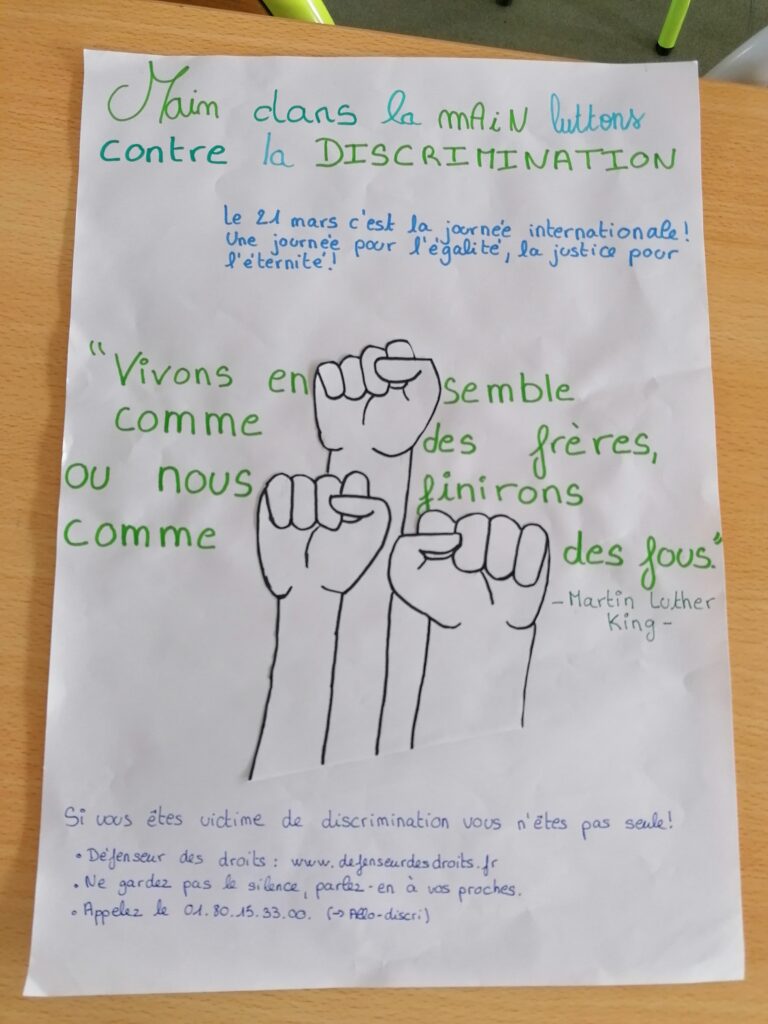 Main dans la mAiN luttons
contre la DISCRIMINATION
Le 21 mars c'est la journée internationale!
Une journée pour l'égalité, la justice pour
l'éternité!
"Vivons ensemble
comme des frères,
ou nous finirons
comme des fous."
- Martin Luther
King -
Si vous êtes victime de discrimination vous n'êtes pas seule!
• Défenseur des droits : www.defenseurdesdroits.fr
• Ne gardez pas le silence, parlez-en à vos proches.
• Appelez le 01.80.15.33.00. (→ Allo-discri)